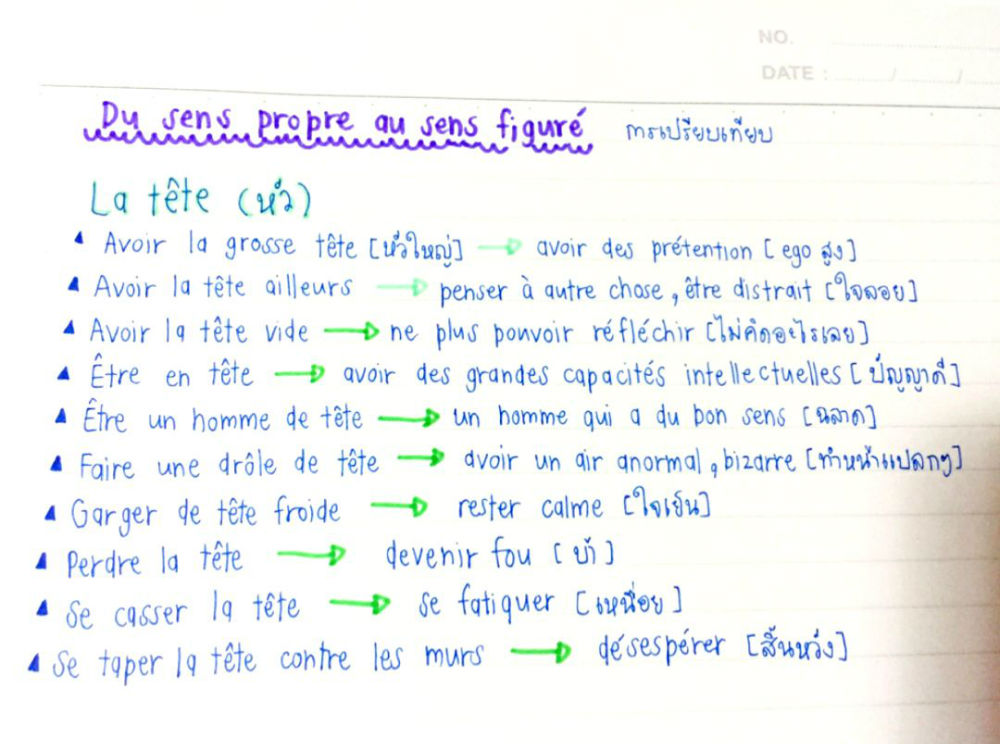 NO.
DATE : / /
Du sens propre au sens figuré การเปรียบเทียบ
La tête (หัว)
Avoir la grosse tête [หัวใหญ่] → avoir des prétention [ego สูง]
Avoir la tête ailleurs → penser à autre chose, être distrait [ใจลอย]
Avoir la tête vide → ne plus pouvoir réfléchir [ไม่คิดอะไรเลย]
Être en tête → avoir des grandes capacités intellectuelles [ปัญญาดี]
Être un homme de tête → un homme qui a du bon sens [ฉลาด]
Faire une drôle de tête → avoir un air anormal, bizarre [ทำหน้าแปลกๆ]
Garger de tête froide → rester calme [ใจเย็น]
Perdre la tête → devenir fou [บ้า]
Se casser la tête → se fatiquer [เหนื่อย]
Se taper la tête contre les murs → désespérer [สิ้นหวัง]